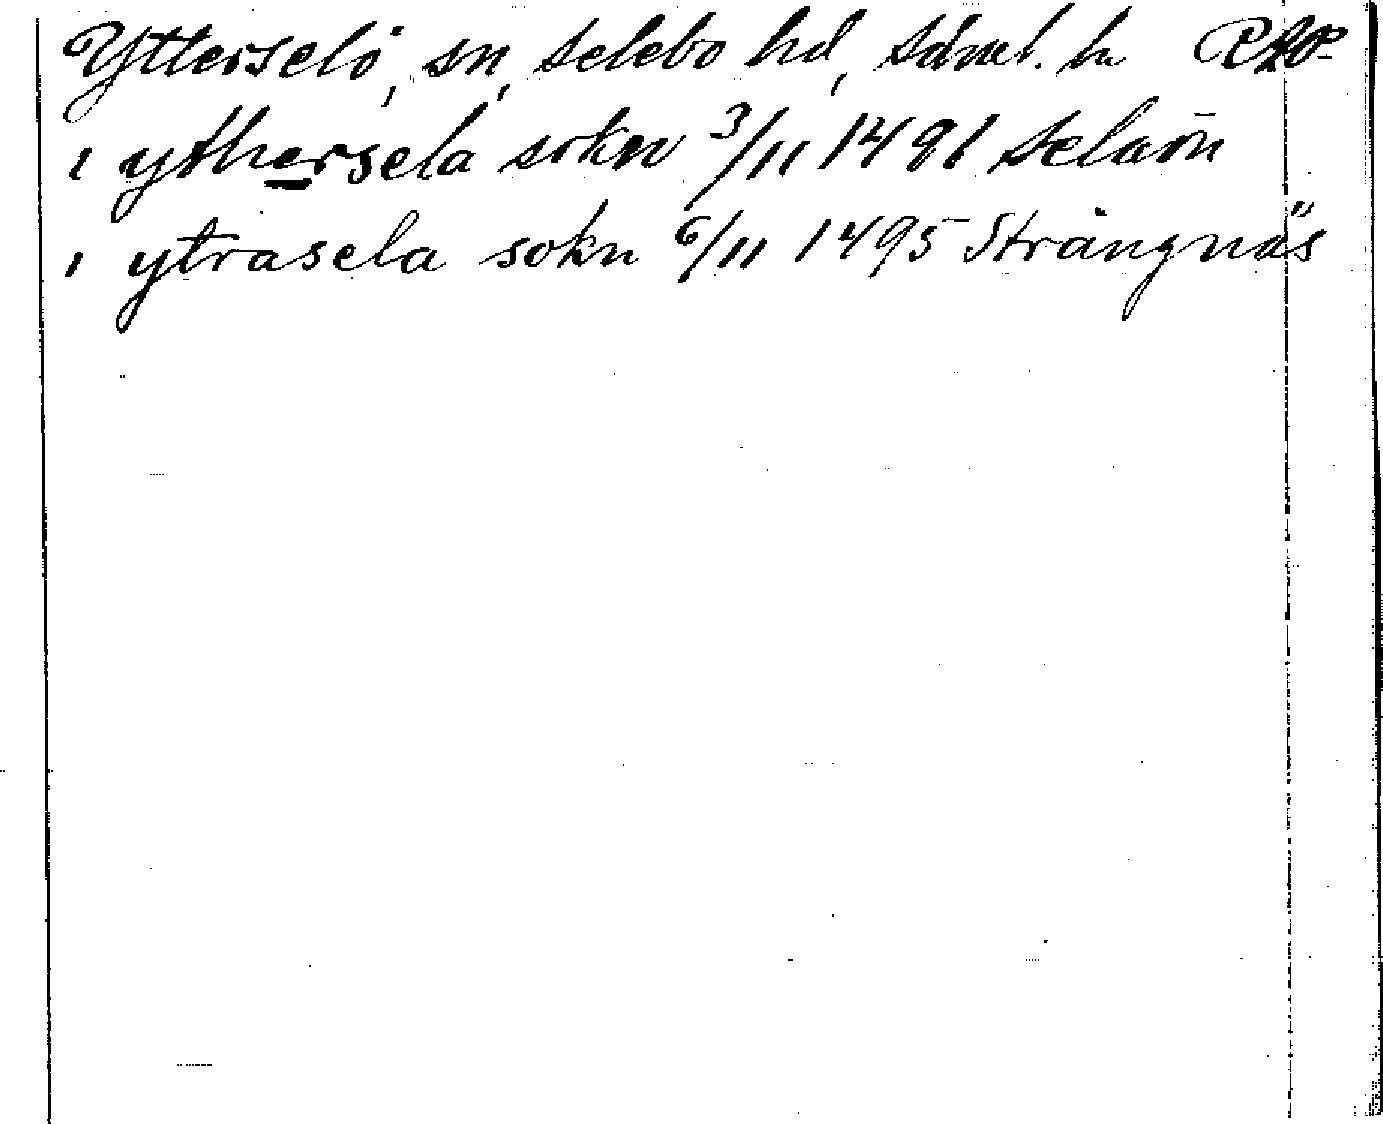 Ytterselö, sn, Selebo hd, Södml. län
i ythersela sokn 3/11 1491 Selaön
i ytrasela sokn 6/11 1495 Strängnäs